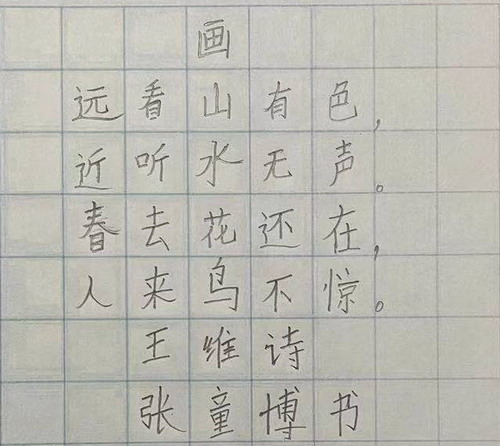 画
远看山有色，
近听水无声。
春去花还在，
人来鸟不惊。
王维诗
张童博书